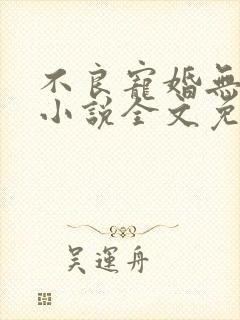 不良寵婚無
小說全文免
吳運舟